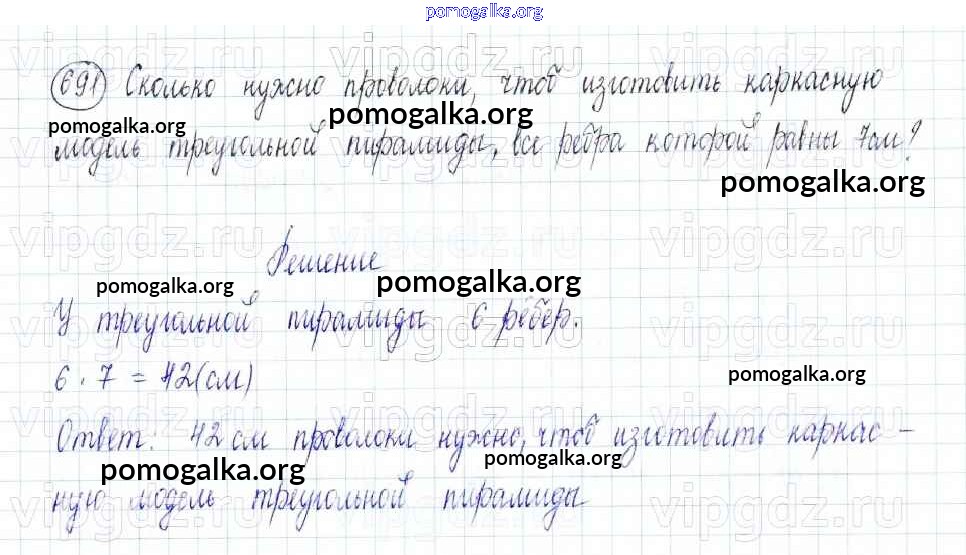 pomogalka.org
691 Сколько нужно проволоки, чтоб изготовить каркасную
pomogalka.org pomogalka.org
модель треугольной пирамиды, все ребра которой равны 7см?
pomogalka.org
vipgdz.ru vipgdz.ru vipgdz.ru
Решение
pomogalka.org pomogalka.org
У треугольной пирамиды 6 рёбер.
6 · 7 = 42(см)
pomogalka.org
Ответ: 42 см проволоки нужно, чтоб изготовить каркас -
pomogalka.org pomogalka.org
ную модель треугольной пирамиды
vipgdz.ru vipgdz.ru vipgdz.ru